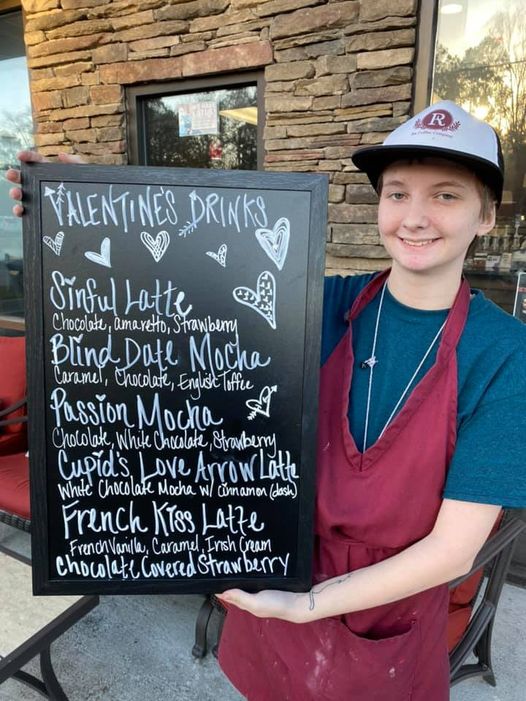 VALENTINE'S DRINKS
Sinful Latte
Chocolate, amaretto, Strawberry
Blind Date Mocha
Caramel, Chocolate, English Toffee
Passion Mocha
Chocolate, White Chocolate, Strawberry
Cupid's Love Arrow Latte
White Chocolate Mocha w/ cinnamon (dash)
French Kiss Latte
French Vanilla, Caramel, Irish Cream
Chocolate Covered Strawberry
R